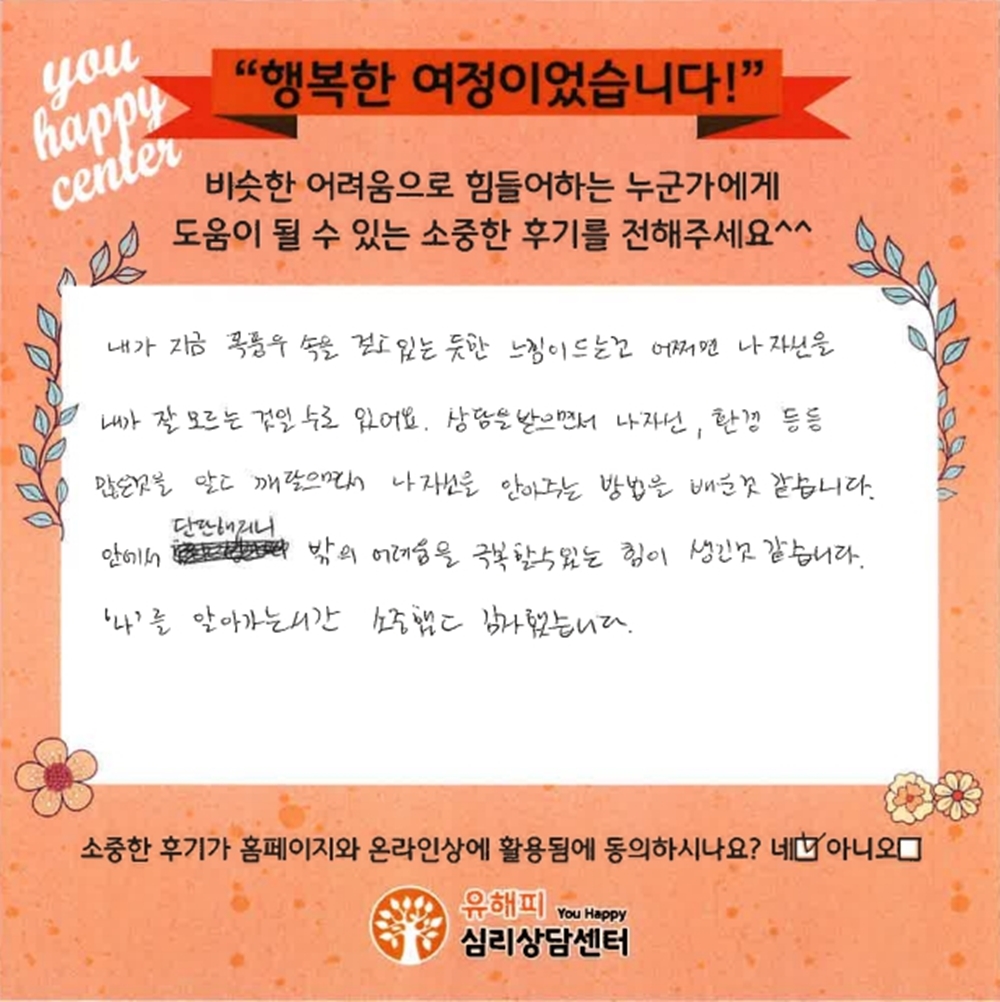 you
happy
center
“행복한 여정이었습니다!”
비슷한 어려움으로 힘들어하는 누군가에게
도움이 될 수 있는 소중한 후기를 전해주세요^^
내가 지금 폭풍우 속을 걷고있는 듯한 느낌이드는건 어쩌면 나 자신을
내가 잘 모르는 것일 수도 있어요. 상담을 받으면서 나자신, 환경 등등
많은것을 알고 깨달으면서 나 자신을 안아주는 방법을 배운것 같습니다.
단단해지니
안에서 밖의 어려움을 극복할수있는 힘이 생긴것 같습니다.
'나'를 알아가는시간 소중했고 감사했습니다.
소중한 후기가 홈페이지와 온라인상에 활용됨에 동의하시나요? 네 아니오
유해피 You Happy
심리상담센터